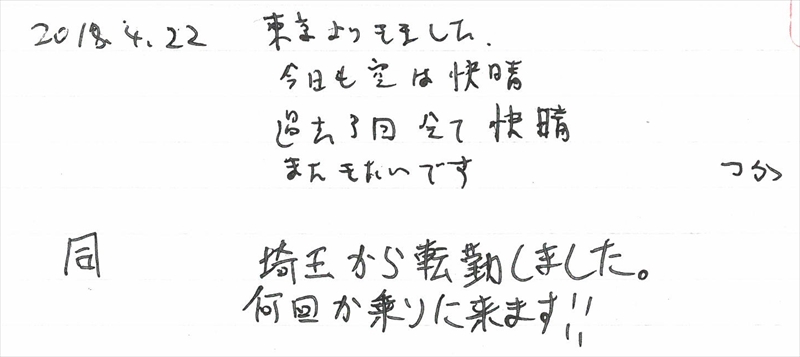 2018.4.22 東京よりきました.
今日も空は快晴
過去3回全て快晴
またきたいです つか
同 埼玉から転勤しました。
何回か乗りに来ます!!